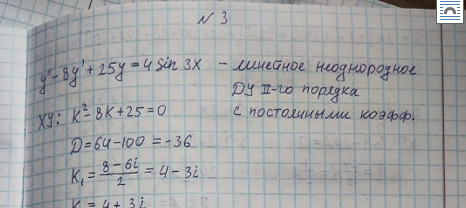 № 3
y'' - 8y' + 25y = 4 sin 3x - линейное неоднородное
ДУ II-го порядка
ХУ: k² - 8k + 25 = 0 с постоянными коэфф.
D = 64 - 100 = -36
k₁ = (8 - 6i)/2 = 4 - 3i
k = 4 + 3i